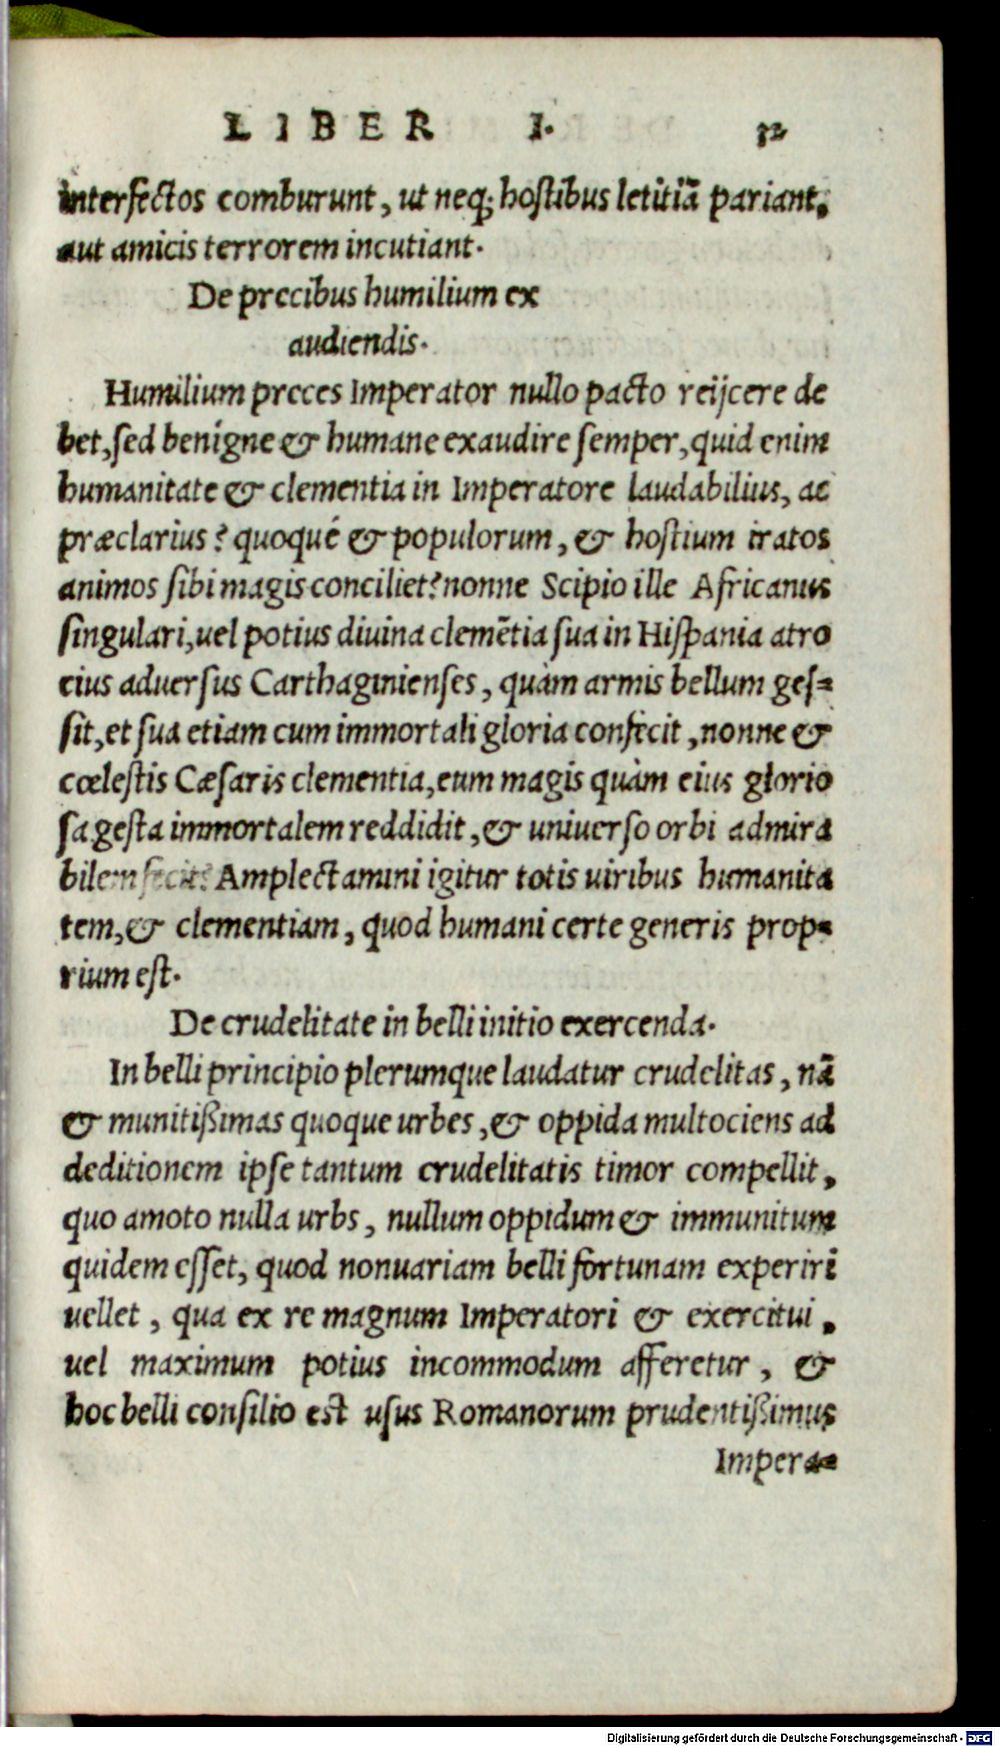 LIBER I. 32
interfectos comburunt, ut neq; hostibus letitiā pariant,
aut amicis terrorem incutiant.
De precibus humilium ex
audiendis.
Humilium preces Imperator nullo pacto reijcere de
bet, sed benigne & humane exaudire semper, quid enim
humanitate & clementia in Imperatore laudabilius, ac
præclarius? quoqué & populorum, & hostium iratos
animos sibi magis conciliet? nonne Scipio ille Africanus
singulari, uel potius diuina clemētia sua in Hispania atro
cius aduersus Carthaginienses, quàm armis bellum ges=
sit, et sua etiam cum immortali gloria confecit, nonne &
cœlestis Cæsaris clementia, eum magis quàm eius glorio
sa gesta immortalem reddidit, & uniuerso orbi admira
bilem fecit? Amplectamini igitur totis uiribus humanita
tem, & clementiam, quod humani certe generis prop=
rium est.
De crudelitate in belli initio exercenda.
In belli principio plerumque laudatur crudelitas, nā
& munitißimas quoque urbes, & oppida multociens ad
deditionem ipse tantum crudelitatis timor compellit,
quo amoto nulla urbs, nullum oppidum & immunitum
quidem esset, quod nonuariam belli fortunam experiri
uellet, qua ex re magnum Imperatori & exercitui,
uel maximum potius incommodum afferetur, &
hoc belli consilio est usus Romanorum prudentißimus
Impera=
Digitalisierung gefördert durch die Deutsche Forschungsgemeinschaft - DFG